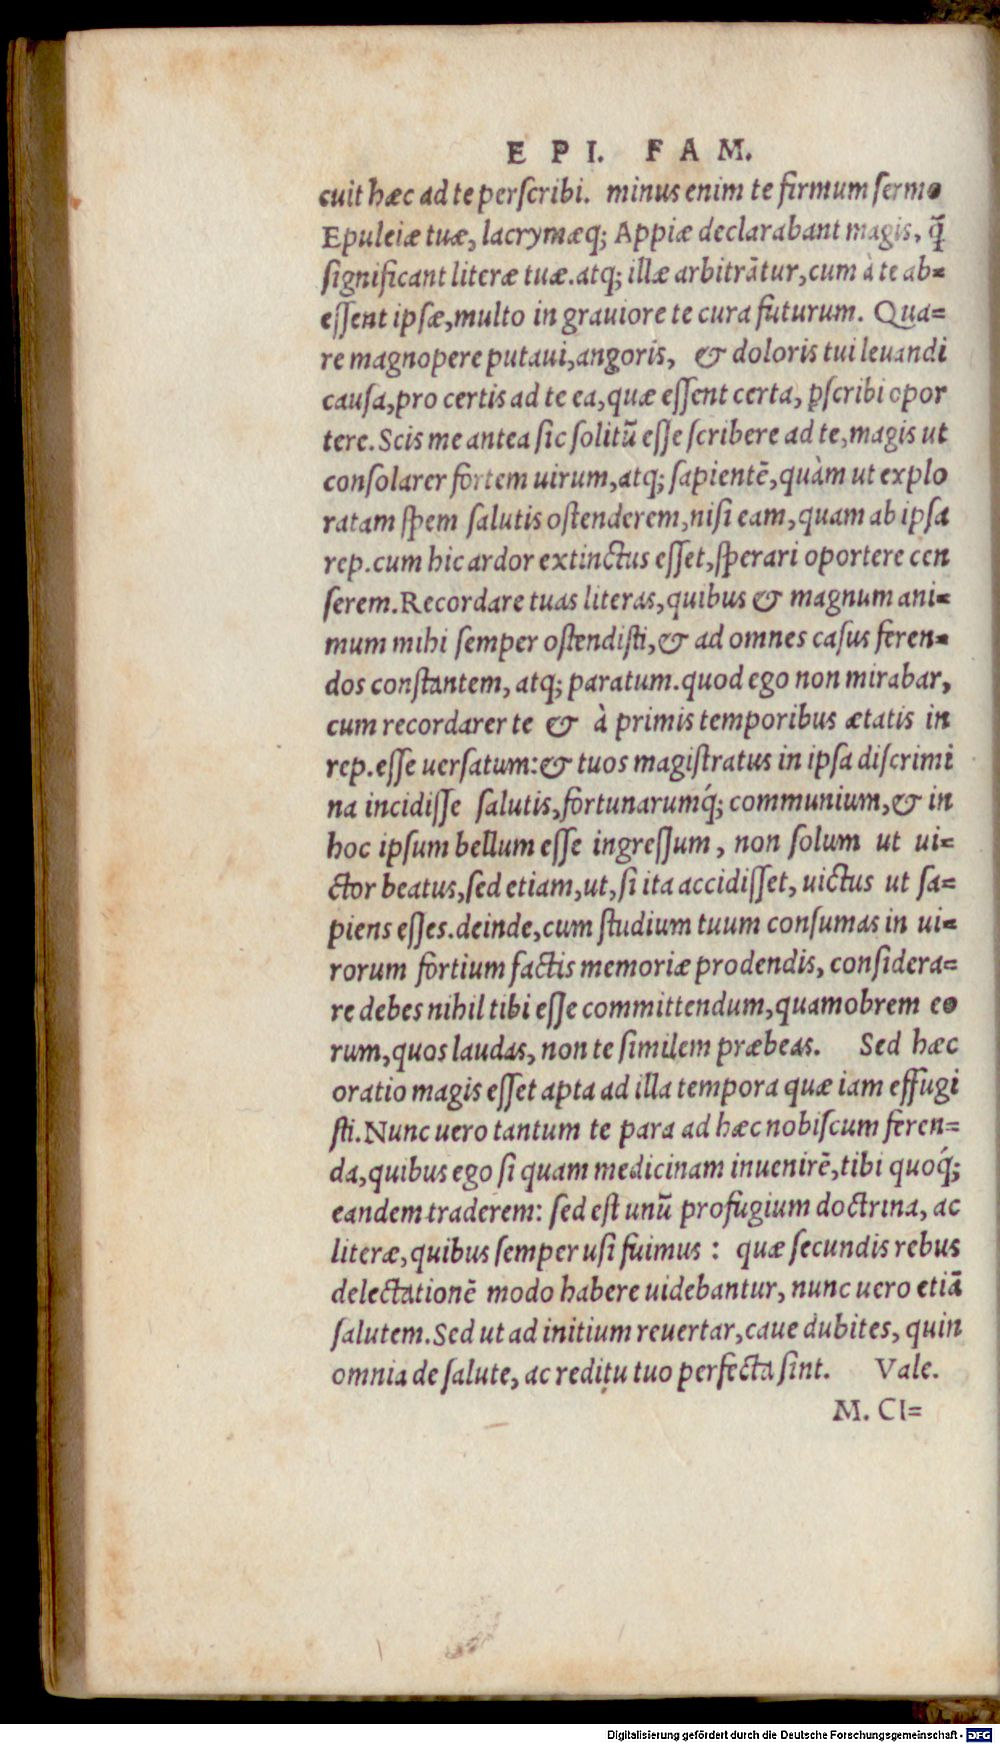 EPI. FAM.
cuit hæc ad te perſcribi. minus enim te firmum ſermo
Epuleiæ tuæ, lacrymæq; Appiæ declarabant magis, q̃
ſignificant literæ tuæ. atq; illæ arbitrãtur, cum à te ab=
eſſent ipſæ, multo in grauiore te cura futurum. Qua=
re magnopere putaui, angoris, & doloris tui leuandi
cauſa, pro certis ad te ea, quæ eſſent certa, ꝑſcribi opor
tere. Scis me antea ſic ſolitũ eſſe ſcribere ad te, magis ut
conſolarer fortem uirum, atq; ſapientẽ, quàm ut explo
ratam ſpem ſalutis oſtenderem, niſi eam, quam ab ipſa
rep. cum hic ardor extinctus eſſet, ſperari oportere cen
ſerem. Recordare tuas literas, quibus & magnum ani=
mum mihi ſemper oſtendiſti, & ad omnes caſus feren=
dos conſtantem, atq; paratum. quod ego non mirabar,
cum recordarer te & à primis temporibus ætatis in
rep. eſſe uerſatum: & tuos magiſtratus in ipſa diſcrimi
na incidiſſe ſalutis, fortunarumq́; communium, & in
hoc ipſum bellum eſſe ingreſſum, non ſolum ut ui=
ctor beatus, ſed etiam, ut, ſi ita accidiſſet, uictus ut ſa=
piens eſſes. deinde, cum ſtudium tuum conſumas in ui=
rorum fortium factis memoriæ prodendis, conſidera=
re debes nihil tibi eſſe committendum, quamobrem eo
rum, quos laudas, non te ſimilem præbeas. Sed hæc
oratio magis eſſet apta ad illa tempora quæ iam effugi
ſti. Nunc uero tantum te para ad hæc nobiſcum feren=
da, quibus ego ſi quam medicinam inuenirẽ, tibi quoq́;
eandem traderem: ſed eſt unũ profugium doctrina, ac
literæ, quibus ſemper uſi fuimus: quæ ſecundis rebus
delectationẽ modo habere uidebantur, nunc uero etiã
ſalutem. Sed ut ad initium reuertar, caue dubites, quin
omnia de ſalute, ac reditu tuo perfecta ſint. Vale.
M. CI=
Digitalisierung gefördert durch die Deutsche Forschungsgemeinschaft - DFG